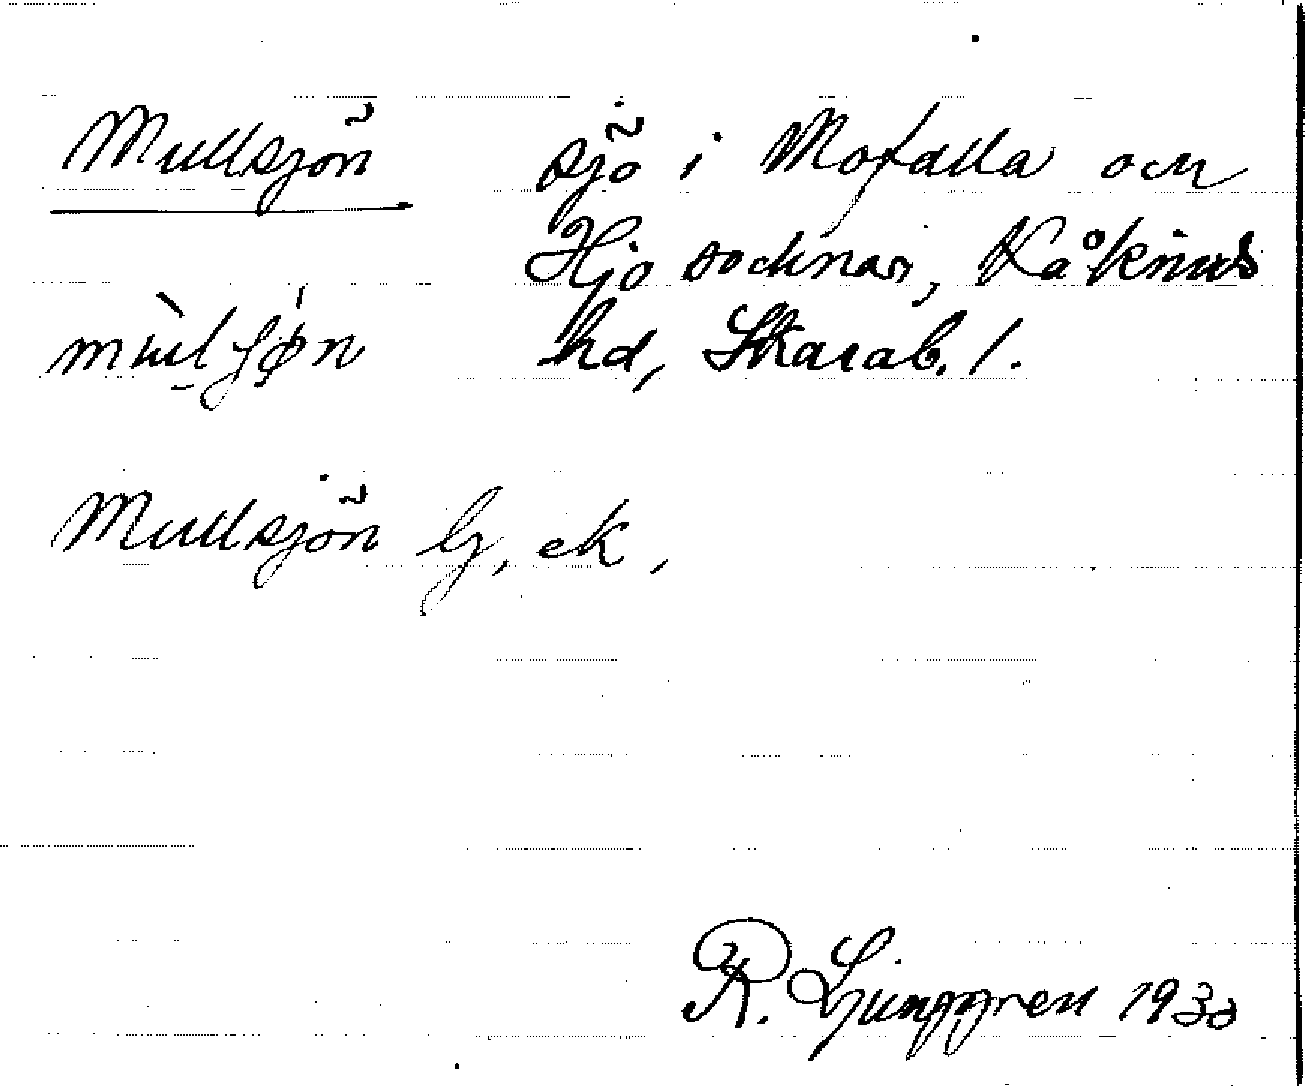 Mullsjön sjö i Mofalla och
Hjo socknar, Kåkinds
hd, Skarab. l.
Mullsjön by, ek,
R. Ljunggren 1930